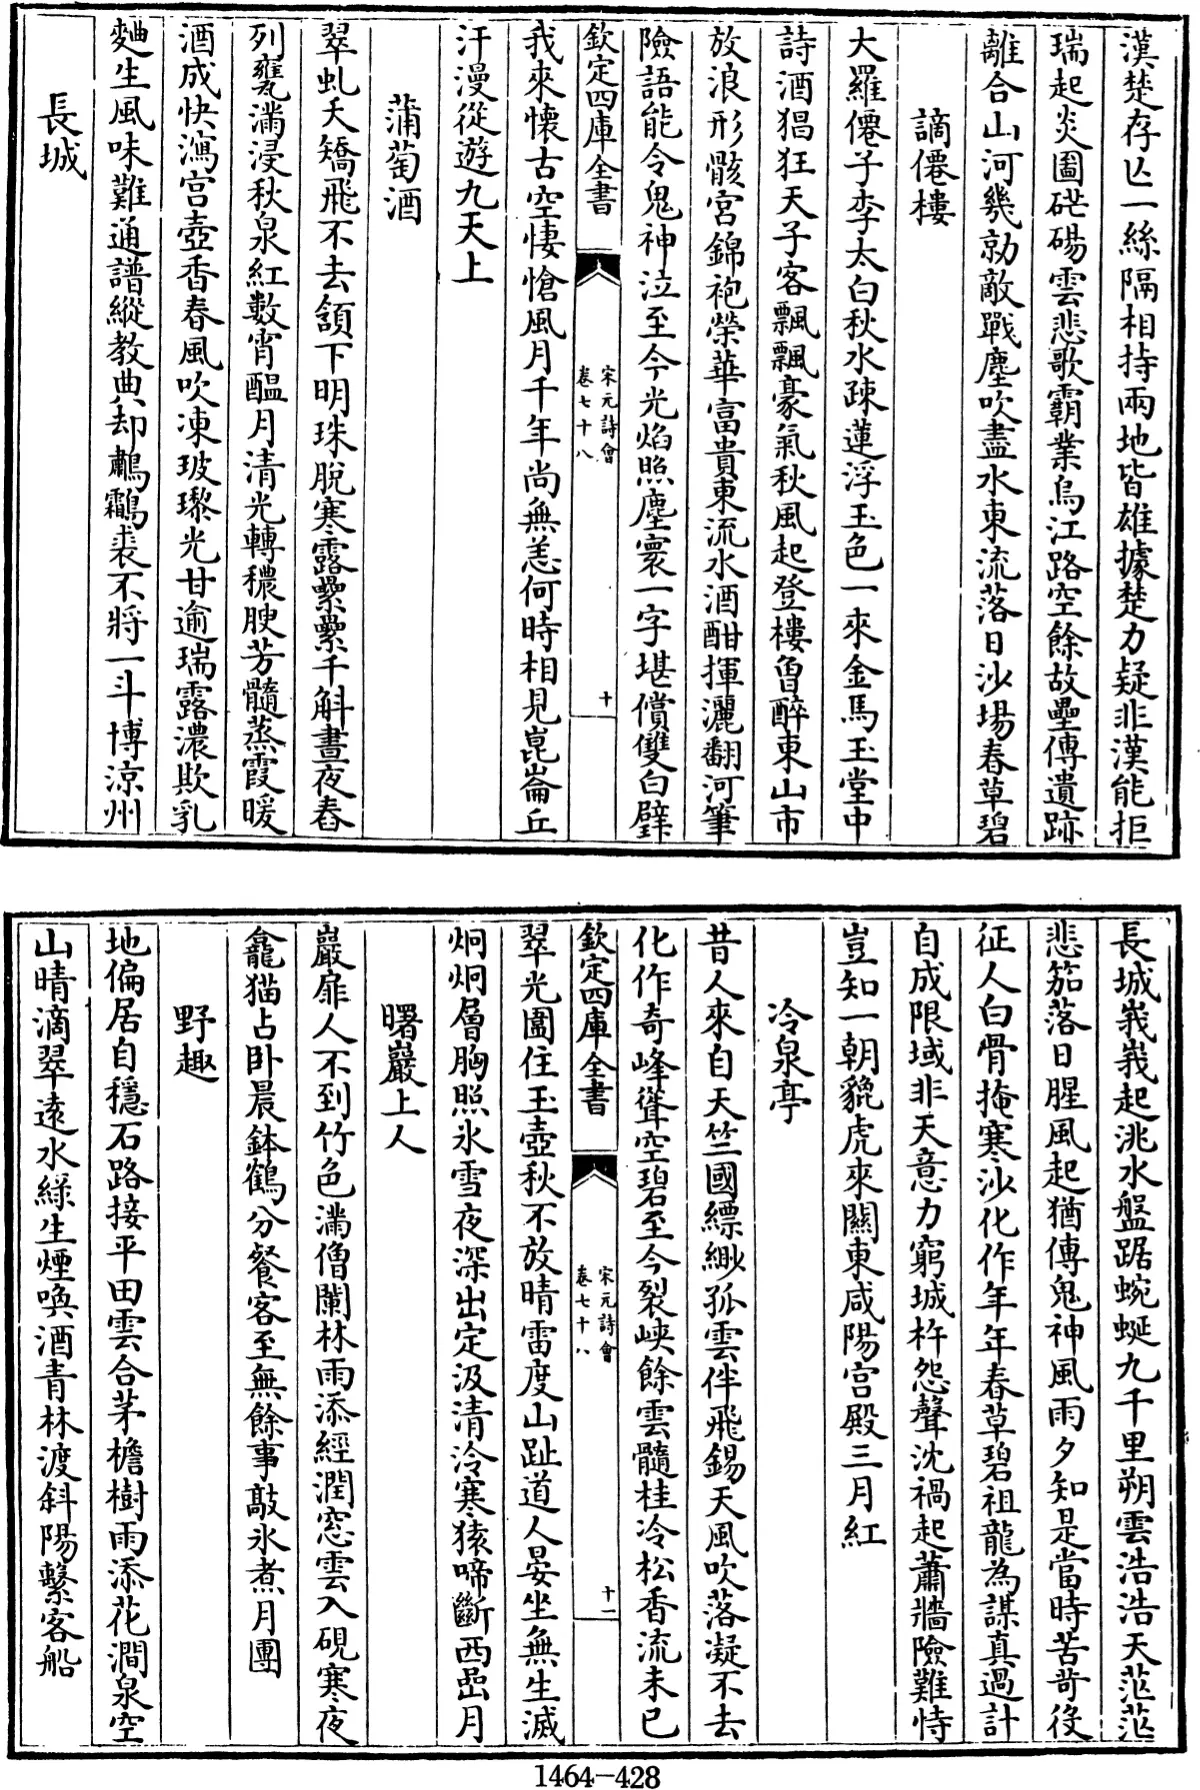 漢楚存亾一絲隔相持兩地皆雄據楚力疑非漢能拒
瑞起炎圖硭碭雲悲歌霸業烏江路空餘故壘傳遺跡
離合山河幾勍敵戰塵吹盡水東流落日沙場春草碧
謫僊樓
大羅僊子李太白秋水疎蓮浮玉色一來金馬玉堂中
詩酒猖狂天子客飄飄豪氣秋風起登樓曾醉東山市
放浪形骸宮錦袍榮華富貴東流水酒酣揮灑翻河筆
險語能令鬼神泣至今光焰照塵寰一字堪償雙白璧
欽定四庫全書
宋元詩會
卷七十八
十
我來懷古空悽愴風月千年尚無恙何時相見崑崙丘
汗漫從遊九天上
蒲萄酒
翠虬夭矯飛不去頷下明珠脫寒露纍纍千斛晝夜舂
列甕滿浸秋泉紅數宵醖月清光轉穠腴芳髓蒸霞暖
酒成快瀉宮壺香春風吹凍玻瓈光甘逾瑞露濃欺乳
麯生風味難通譜縱教典却鷫鸘裘不將一斗博涼州
長城
長城峩峩起洮水盤踞蜿蜒九千里朔雲浩浩天茫茫
悲笳落日腥風起猶傳鬼神風雨夕知是當時苦苛役
征人白骨掩寒沙化作年年春草碧祖龍為謀真過計
自成限域非天意力窮城杵怨聲沈禍起蕭牆險難恃
豈知一朝貔虎來關東咸陽宮殿三月紅
冷泉亭
昔人來自天竺國縹緲孤雲伴飛錫天風吹落凝不去
化作奇峰聳空碧至今裂峽餘雲髓桂冷松香流未已
欽定四庫全書
宋元詩會
卷七十八
十一
翠光圍住玉壺秋不放晴雷度山趾道人晏坐無生滅
炯炯層胸照氷雪夜深出定汲清泠寒猿啼斷西嵓月
曙巖上人
巖扉人不到竹色滿僧闌林雨添經潤窓雲入硯寒夜
龕猫占卧晨鉢鶴分餐客至無餘事敲氷煮月團
野趣
地偏居自穩石路接平田雲合茅檐樹雨添花澗泉空
山晴滴翠遠水綠生煙喚酒青林渡斜陽繫客船
1464—428